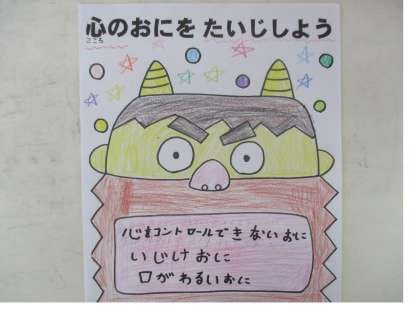 心のおにを たいじしよう
こころ
心をコントロールできないおに
いじけおに
口がわるいおに